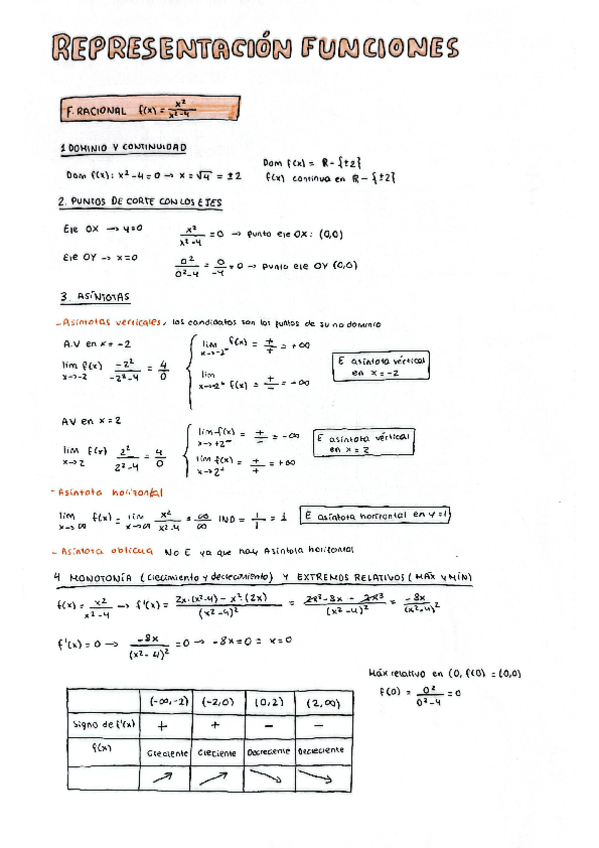 REPRESENTACIÓN FUNCIONES
F. RACIONAL f(x) = x²/x²-4
1 DOMINIO Y CONTINUIDAD
Dom f(x): x²-4=0 → x=√4 = ±2
Dom f(x) = R-{±2}
f(x) continua en R-{±2}
2. PUNTOS DE CORTE CON LOS EJES
Eje OX → y=0 x²/x²-4 = 0 → Punto eje OX: (0,0)
Eje OY → x=0 0²/0²-4 = 0/-4 = 0 → Punto eje OY (0,0)
3. ASÍNTOTAS
- Asíntotas verticales, los candidatos son los puntos de su no dominio
A.V en x=-2
lim f(x) x→-2 -2²/-2²-4 = 4/0
lim x→-2⁻ f(x) = +/+ = +∞
lim x→-2⁺ f(x) = +/- = -∞
E asíntota vértical en x=-2
AV en x=2
lim f(x) x→2 2²/2²-4 = 4/0
lim f(x) = x→+2⁻ +/- = -∞
lim f(x) = x→2⁺ +/+ = +∞
E asíntota vértical en x=2
- Asíntota horizontal
lim x→∞ f(x) = lim x→∞ x²/x²-4 = ∞/∞ IND = 1/1 = 1
E asíntota horizontal en y=1
- Asíntota oblicua NO E ya que hay Asíntota horizontal
4 MONOTONÍA (crecimiento y decrecimiento) Y EXTREMOS RELATIVOS (MÁX Y MÍN)
f(x) = x²/x²-4 → f'(x) = 2x·(x²-4) - x²·(2x)/(x²-4)² = 2x³-8x-2x³/(x²-4)² = -8x/(x²-4)²
f'(x)=0 → -8x/(x²-4)² = 0 → -8x=0 = x=0
Máx relativo en (0, f(0) = (0,0)
f(0) = 0²/0²-4 = 0
(-∞,-2) (-2,0) (0,2) (2,∞)
Signo de f'(x) + + - -
f(x) Creciente Creciente Decreciente Decreciente